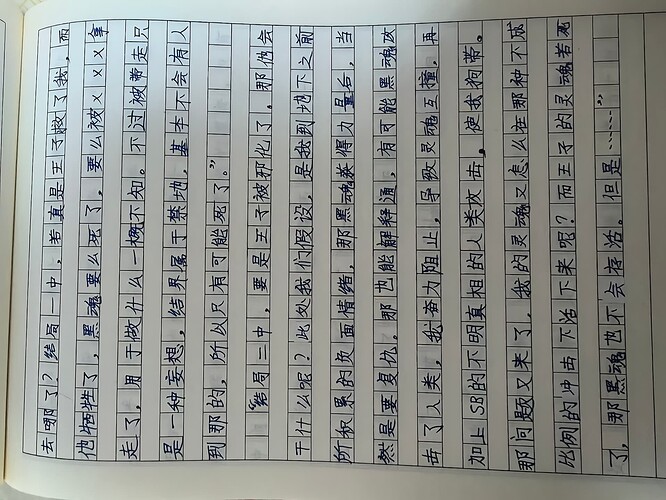 去哪了？结局一中，若真是王子救了我，而
他牺牲了，黑魂要么死了，要么被×××拿
走了，用于做什么一概不知。不过被带走只
是一种妄想，结界属于禁地，基本不会有人
到那的，所以只有可能死了。”
“结局二中，要是王子被邪化了。那他会
干什么呢？此处我们假设，是我到地下之前
所积累的负面情绪，那黑魂获得力量后，当
然是要复仇。那也能解释通，有可能黑魂攻
击了人类，我奋力阻止，导致灵魂互撞，再
加上SB的不明真相的人类攻击，使我狗带。
那问题又来了，我的灵魂又怎么在那种不成
比例的冲击下活下来呢？而王子的灵魂若死
了，那黑魂也不会存活。但是……”